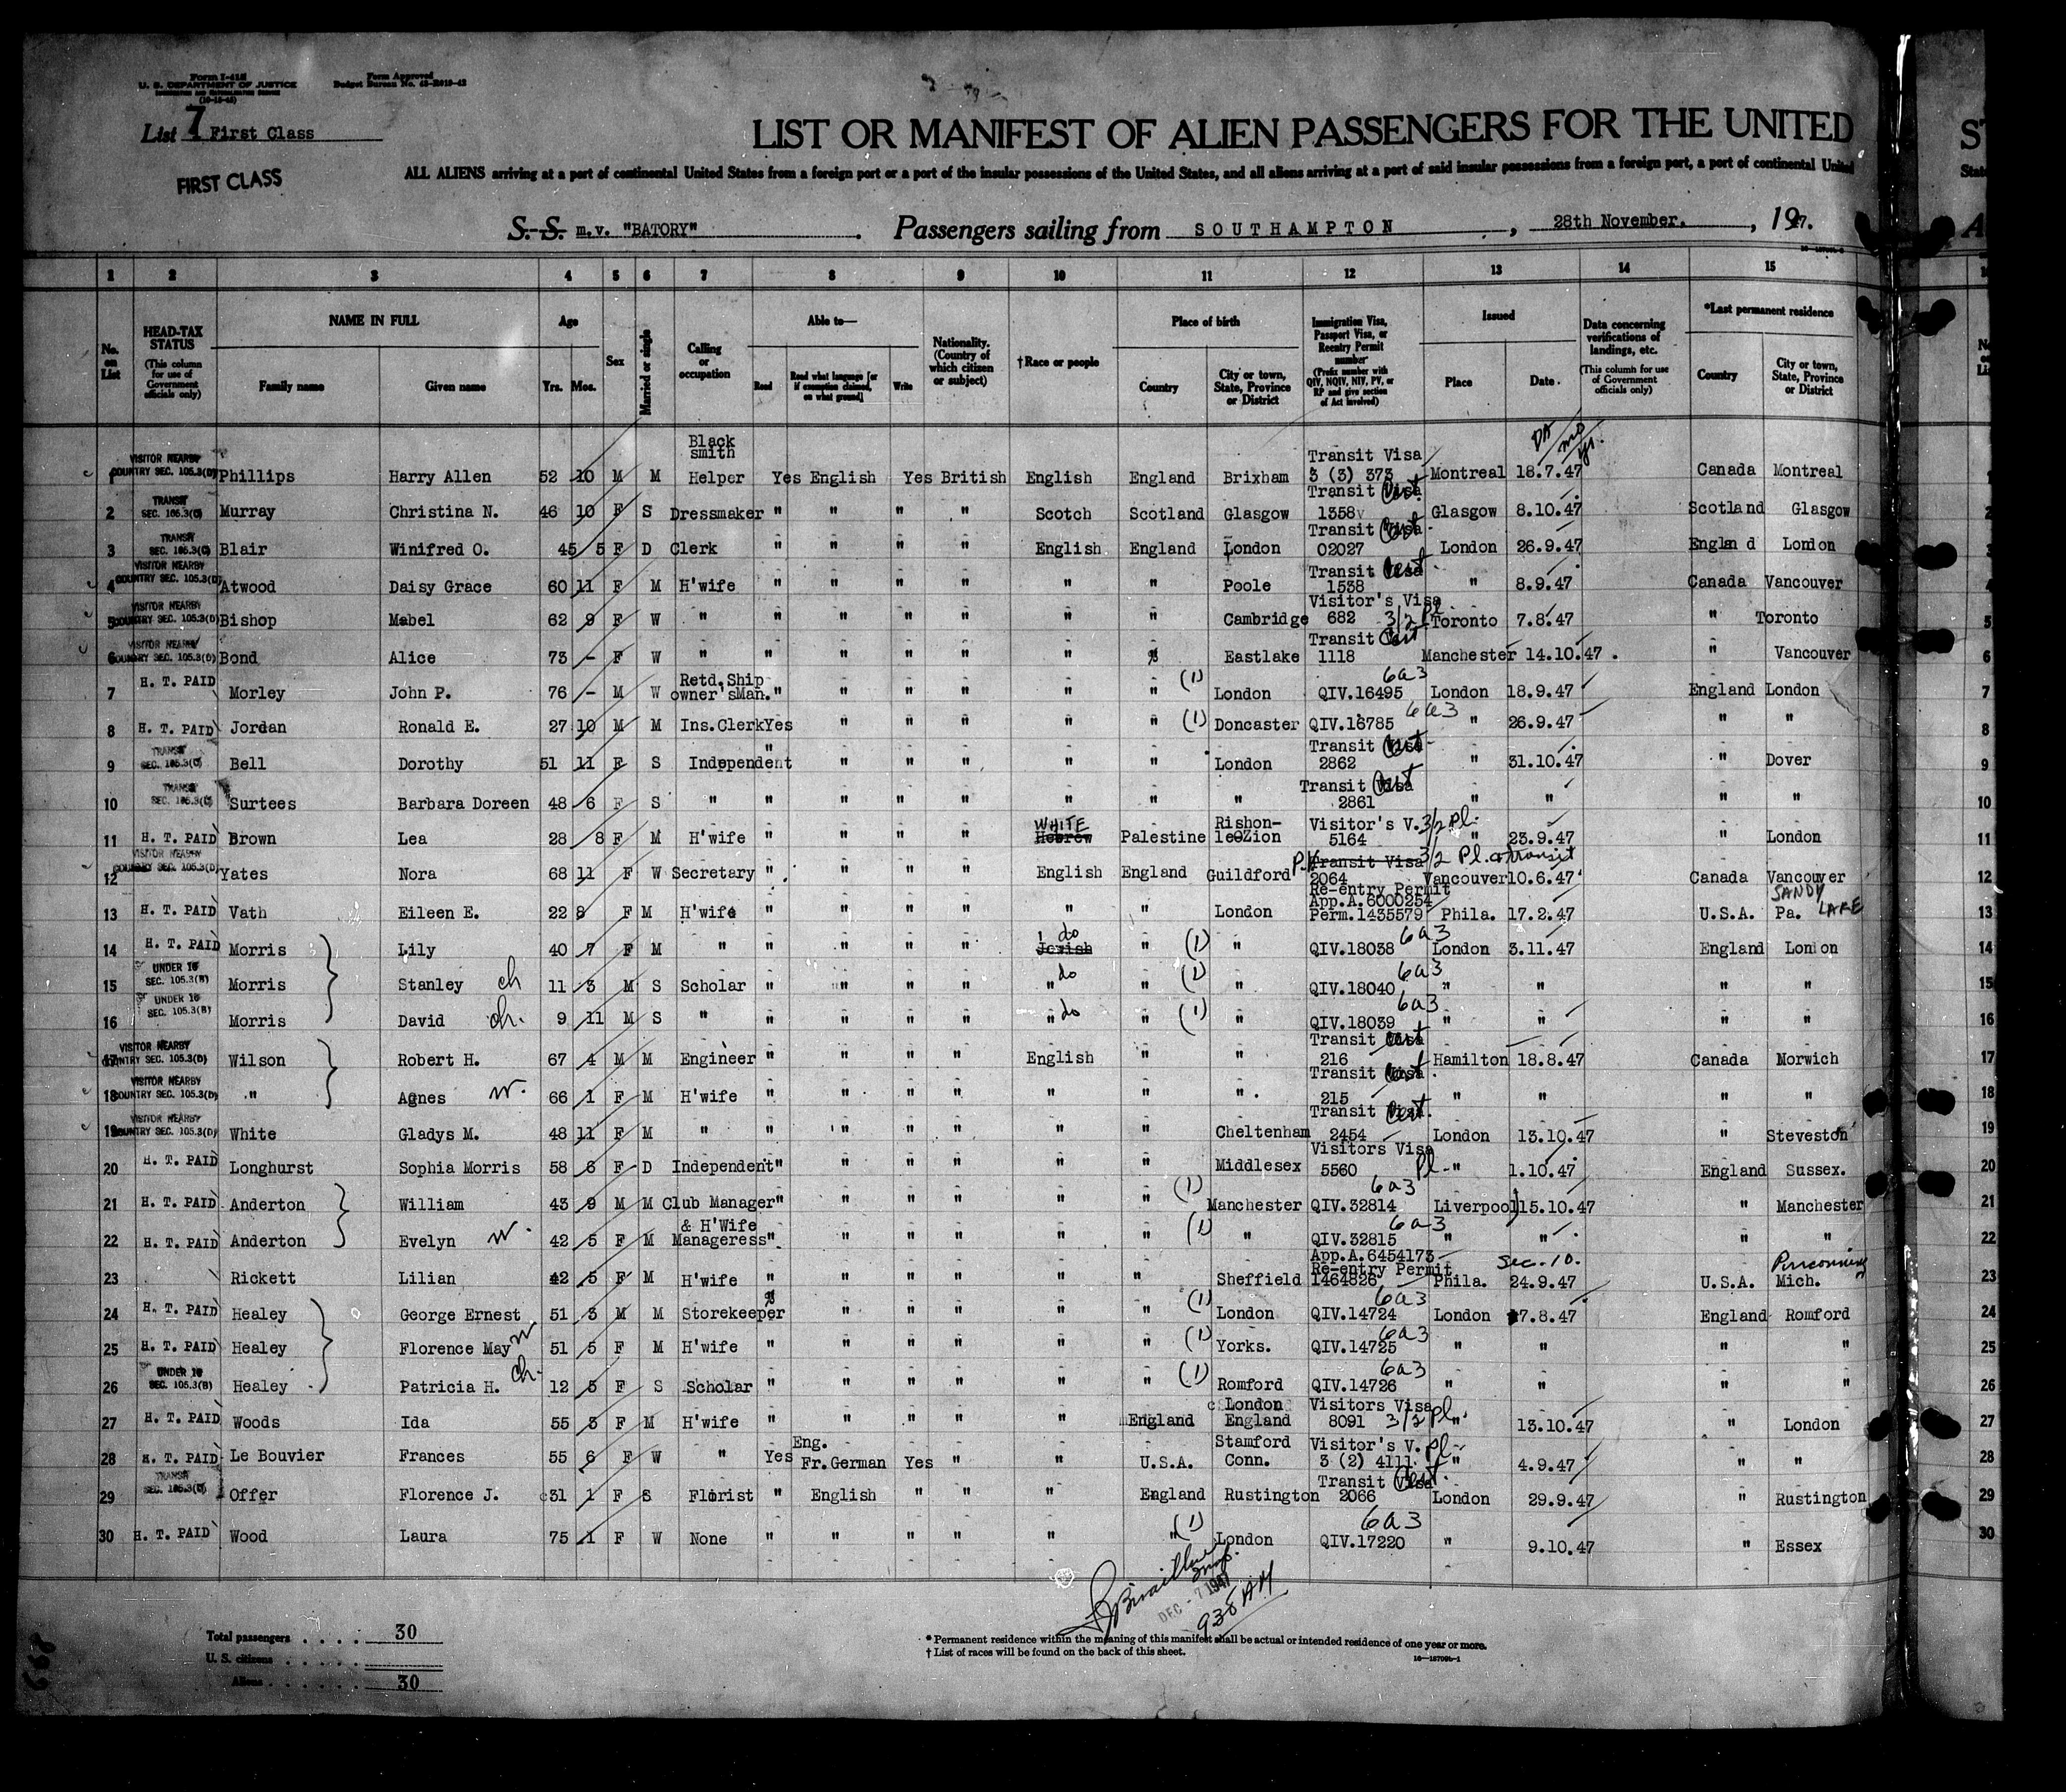 Form I-415
U. S. DEPARTMENT OF JUSTICE
IMMIGRATION AND NATURALIZATION SERVICE
Form Approved
Budget Bureau No. 43-R019-42
List 7 First Class
FIRST CLASS
LIST OR MANIFEST OF ALIEN PASSENGERS FOR THE UNITED
ALL ALIENS arriving at a port of continental United States from a foreign port or a port of the insular possessions of the United States, and all aliens arriving at a port of said insular possessions from a foreign port, a port of continental United
S. S. m.v. "BATORY" . Passengers sailing from SOUTHAMPTON , 28th November. , 1947.
1 2 3 4 5 6 7 8 9 10 11 12 13 14 15
No. on List
HEAD-TAX STATUS (This column for use of Government officials only)
NAME IN FULL Family name Given name
Age Yrs. Mos.
Sex
Married or single
Calling or occupation
Able to— Read Read what language [or if exemption claimed, on what ground] Write
Nationality. (Country of which citizen or subject)
†Race or people
Place of birth Country City or town, State, Province or District
Immigration Visa, Passport Visa, or Reentry Permit number (Prefix number with QIV, NQIV, NIV, PV, or RP and give section of Act involved)
Issued Place Date
Data concerning verifications of landings, etc. (This column for use of Government officials only)
*Last permanent residence Country City or town, State, Province or District
1 VISITOR NEARBY COUNTRY SEC. 105.3(D) Phillips Harry Allen 52 10 M M Black smith Helper Yes English Yes British English England Brixham Transit Visa 3 (3) 373 Montreal 18.7.47 Canada Montreal
2 TRANSIT SEC. 105.3(C) Murray Christina N. 46 10 F S Dressmaker " " " " Scotch Scotland Glasgow Transit Visa Cert. 1358 Glasgow 8.10.47 Scotland Glasgow
3 TRANSIT SEC. 105.3(C) Blair Winifred O. 45 5 F D Clerk " " " " English England London Transit Visa Cert 02027 London 26.9.47 England London
4 VISITOR NEARBY COUNTRY SEC. 105.3(D) Atwood Daisy Grace 60 11 F M H'wife " " " " " " Poole Transit Visa Cert 1538 " 8.9.47 Canada Vancouver
5 VISITOR NEARBY COUNTRY SEC. 105.3(D) Bishop Mabel 62 9 F W " " " " " " " Cambridge Visitor's Visa 682 3/2 Pl Toronto 7.8.47 " Toronto
6 VISITOR NEARBY COUNTRY SEC. 105.3(D) Bond Alice 73 - F W " " " " " " " Eastlake Transit Visa Cert 1118 Manchester 14.10.47 " Vancouver
7 H. T. PAID Morley John P. 76 - M W Retd. Ship owner's Man. " " " " " " (1) London QIV.16495 6a3 London 18.9.47 England London
8 H. T. PAID Jordan Ronald E. 27 10 M M Ins. Clerk Yes " " " " " (1) Doncaster QIV.16785 6a3 " 26.9.47 " "
9 TRANSIT SEC. 105.3(C) Bell Dorothy 51 11 F S Independent " " " " " " London Transit Visa Cert 2862 " 31.10.47 " Dover
10 TRANSIT SEC. 105.3(C) Surtees Barbara Doreen 48 6 F S " " " " " " " " Transit Visa Cert 2861 " " " "
11 H. T. PAID Brown Lea 28 8 F M H'wife " " " " WHITE Hebrew Palestine Rishon-leOZion Visitor's V. 3/2 Pl. 5164 " 23.9.47 " London
12 VISITOR NEARBY COUNTRY SEC. 105.3(D) Yates Nora 68 11 F W Secretary " " " " English England Guildford P.V. Transit Visa 3/2 Pl. or transit 2064 Vancouver 10.6.47 Canada Vancouver
13 H. T. PAID Vath Eileen E. 22 8 F M H'wife " " " " " " London Re-entry Permit App.A.6000254 Perm.1435579 Phila. 17.2.47 U.S.A. Pa. SANDY LAKE
14 H. T. PAID Morris Lily 40 7 F M " " " " " do Jewish " (1) " QIV.18038 6a3 London 3.11.47 England London
15 UNDER 16 SEC. 105.3(B) Morris Stanley ch 11 3 M S Scholar " " " " " do " (1) " QIV.18040 6a3 " " " "
16 UNDER 16 SEC. 105.3(B) Morris David ch. 9 11 M S " " " " " " do " (1) " QIV.18039 6a3 " " " "
17 VISITOR NEARBY COUNTRY SEC. 105.3(D) Wilson Robert H. 67 4 M M Engineer " " " " English " " Transit Visa Cert 216 Hamilton 18.8.47 Canada Norwich
18 VISITOR NEARBY COUNTRY SEC. 105.3(D) " Agnes w. 66 1 F M H'wife " " " " " " " Transit Visa Cert. 215 " " " "
19 VISITOR NEARBY COUNTRY SEC. 105.3(D) White Gladys M. 48 11 F M " " " " " " " Cheltenham Transit Visa Cert. 2454 London 13.10.47 " Steveston
20 H. T. PAID Longhurst Sophia Morris 58 6 F D Independent " " " " " " Middlesex Visitors Visa 5560 Pl " 1.10.47 England Sussex.
21 H. T. PAID Anderton William 43 9 M M Club Manager " " " " " " (1) Manchester QIV.32814 6a3 Liverpool 15.10.47 " Manchester
22 H. T. PAID Anderton Evelyn w. 42 5 F M & H'Wife Manageress " " " " " " (1) " QIV.32815 6a3 " " " "
23 Rickett Lilian 42 5 F M H'wife " " " " " " Sheffield App.A.6454173 Re-entry Permit 1464826 Phila. Sec. 10. 24.9.47 U.S.A. Mich.
24 H. T. PAID Healey George Ernest 51 3 M M Storekeeper " " " " " (1) London QIV.14724 6a3 London 7.8.47 England Romford
25 H. T. PAID Healey Florence May w 51 5 F M H'wife " " " " " " (1) Yorks. QIV.14725 6a3 " " " "
26 UNDER 16 SEC. 105.3(B) Healey Patricia H. ch. 12 5 F S Scholar " " " " " " (1) Romford QIV.14726 6a3 " " " "
27 H. T. PAID Woods Ida 55 3 F M H'wife " " " " " England London England Visitors Visa 8091 3/2 Pl. " 13.10.47 " London
28 H. T. PAID Le Bouvier Frances 55 6 F W " Yes Eng. Fr. German Yes " " U.S.A. Stamford Conn. Visitor's V. Pl 3 (2) 4111 " 4.9.47 " "
29 TRANSIT SEC. 105.3(C) Offer Florence J. 31 1 F S Florist " English " " " England Rustington Transit Visa Cert. 2066 London 29.9.47 " Rustington
30 H. T. PAID Wood Laura 75 1 F W None " " " " " " (1) London QIV.17220 6a3 " 9.10.47 " Essex
DEC - 7 1947
935 AM
Total passengers . . . . 30
U. S. citizens . . . . .
Aliens . . . . . . 30
* Permanent residence within the meaning of this manifest shall be actual or intended residence of one year or more.
† List of races will be found on the back of this sheet.